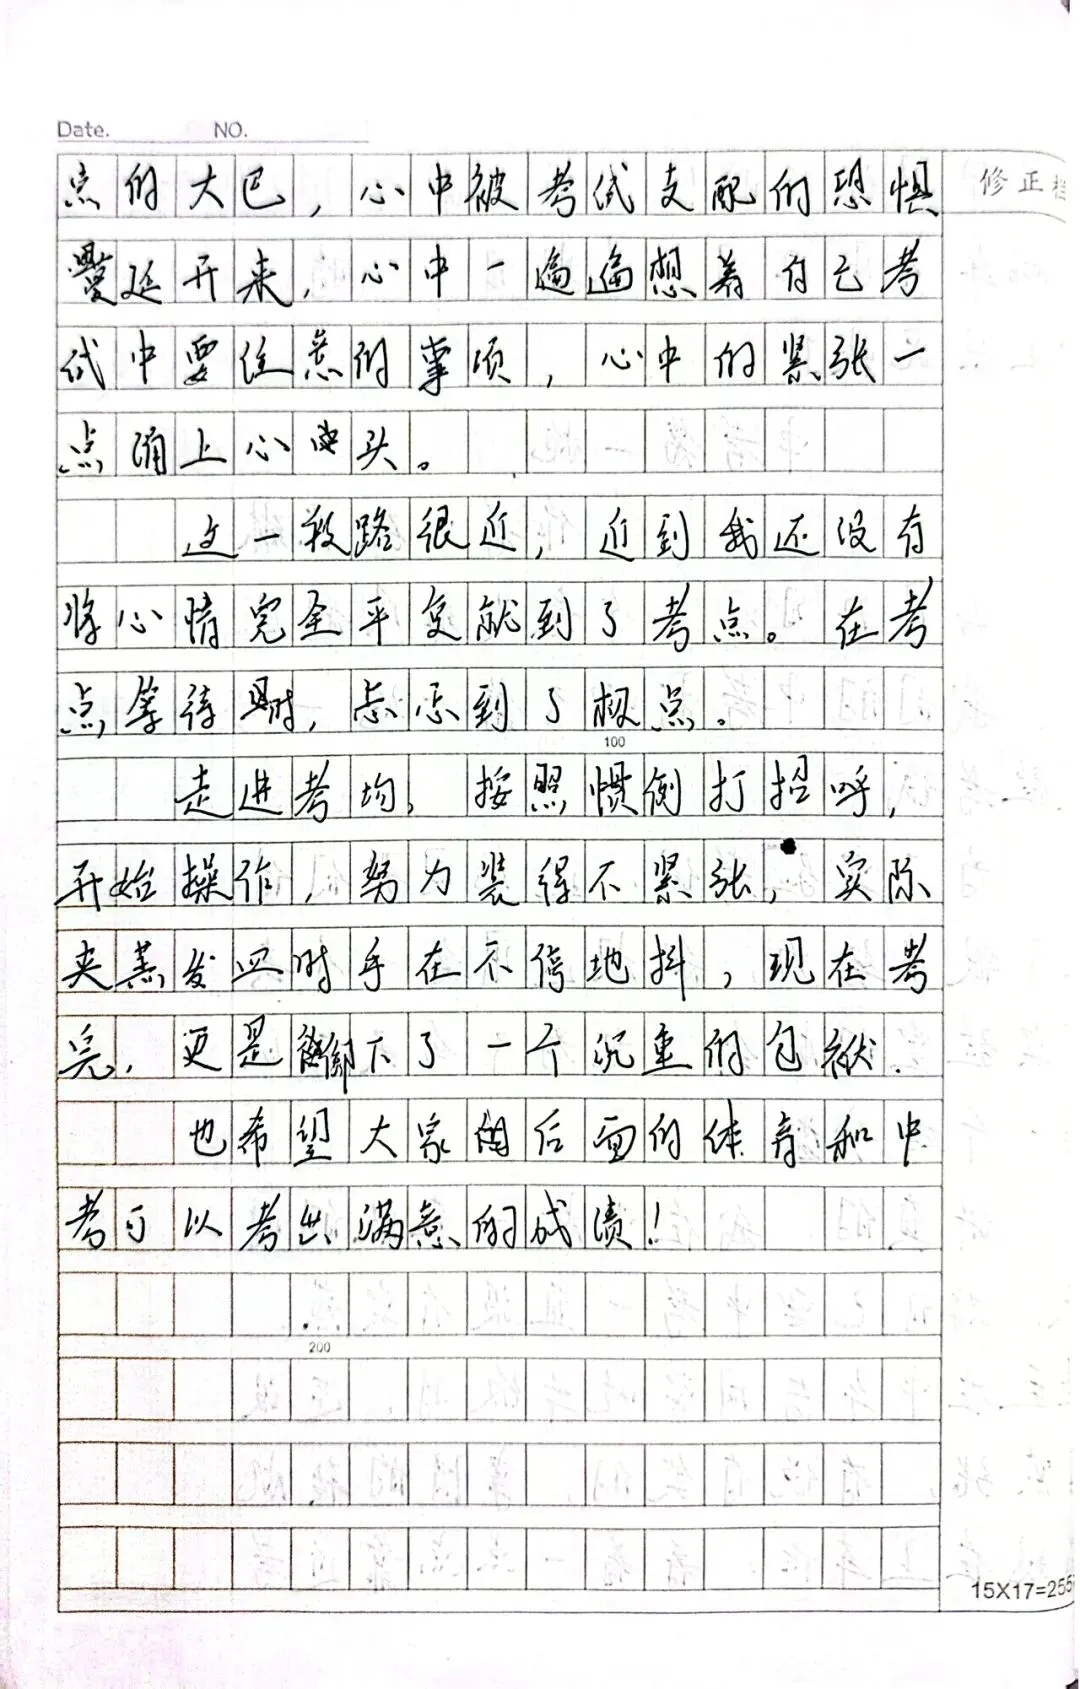 Date. NO.
点的大巴，心中被考试支配的恐惧
蔓延开来，心中一遍遍想着自己考
试中要注意的事项，心中的紧张一
点涌上心头。
这一段路很近，近到我还没有
将心情完全平复就到了考点。在考
点等待时，忐忑到了极点。
100
走进考场，按照惯例打招呼，
开始操作，努力装得不紧张，实际
夹蒸发皿时手在不停地抖，现在考
完，更是卸下了一个沉重的包袱.
也希望大家的后面的体育和中
考可以考出满意的成绩！
200
修正
15X17=255